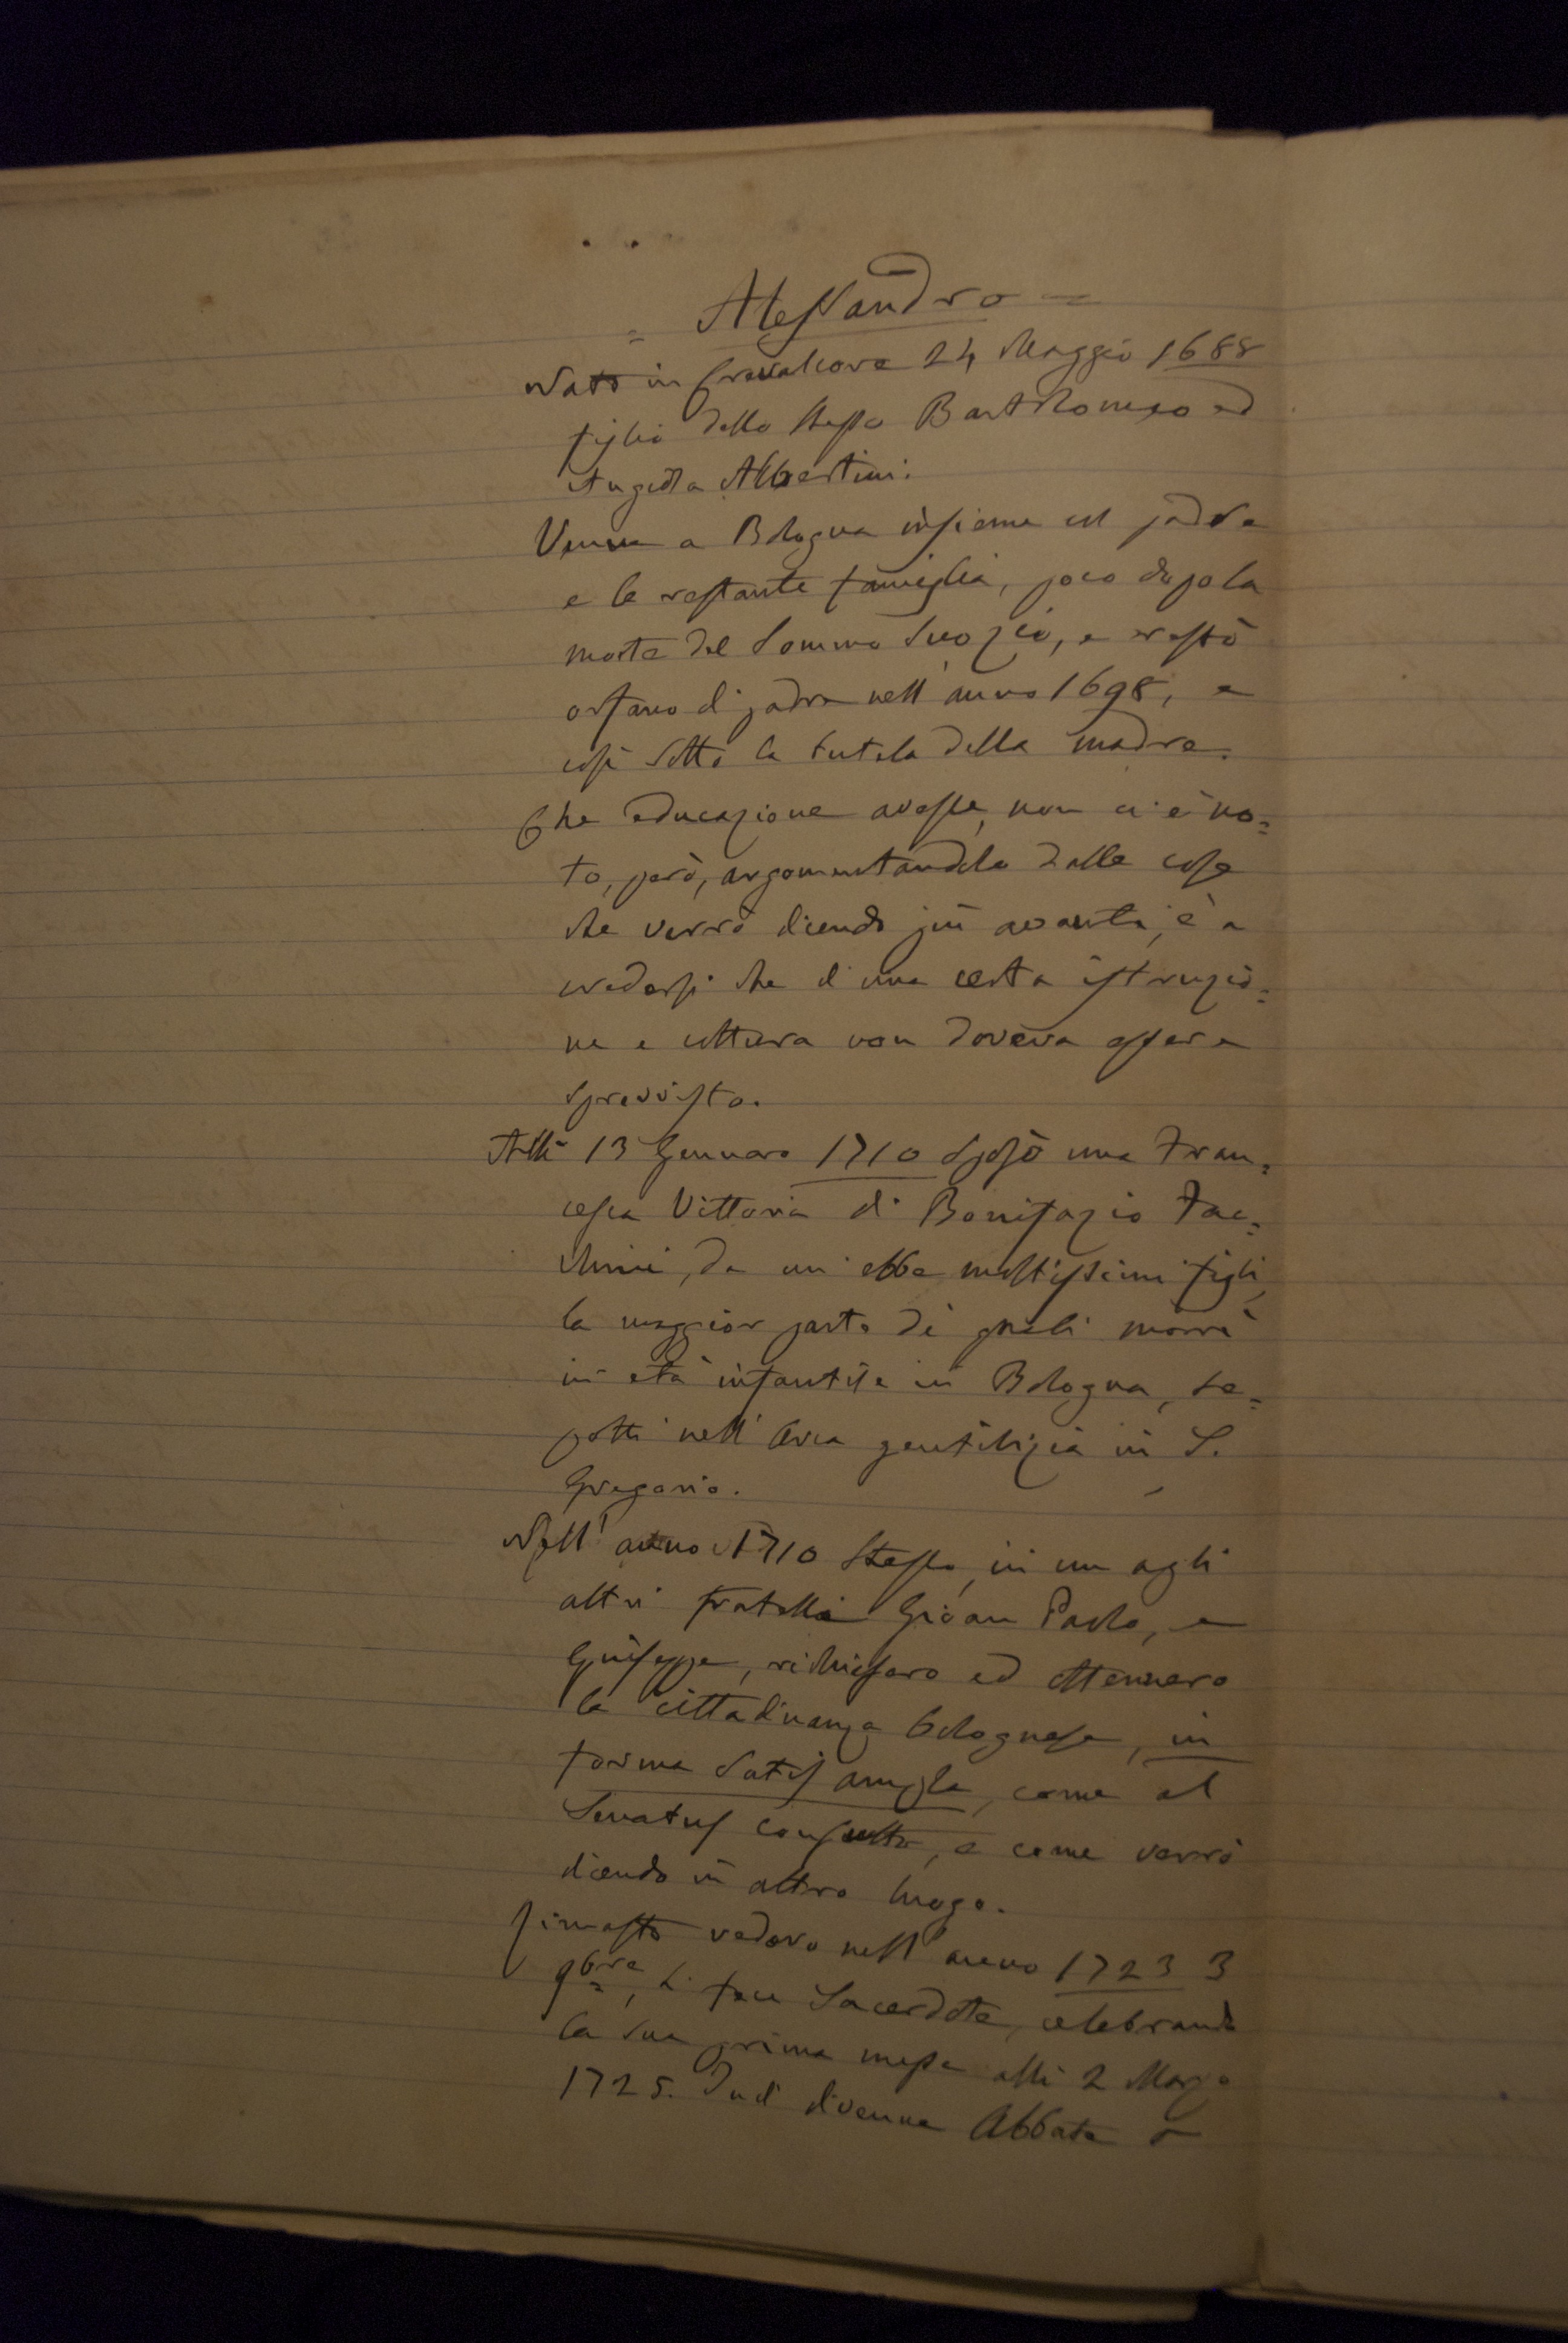 = Alessandro =
Nato in Crevalcore 24 Maggio 1688
figlio dello stesso Bartolomeo ed
Angiola Albertini.
Venne a Bologna insieme col padre
e la restante famiglia, poco dopo la
morte del Sommo suo zio, e restò
orfano di padre nell'anno 1698, e
così sotto la tutela della madre.
Che educazione avesse, non ci è no=
to, però, argomentandola dalle cose
che verrò dicendo più avanti, è a
credersi che di una certa istruzio=
ne e coltura non doveva essere
sprovvisto.
Alli 13 Gennaro 1710 sposò una Fran=
cesca Vittoria di Bonifazio Fac=
chini, da cui ebbe moltissimi figli,
la maggior parte dei quali morì
in età infantile in Bologna, se=
polti nell'Arca gentilizia in S.
Gregorio.
Nell'anno 1710 stesso, in un agli
altri fratelli Gioan Paolo, e
Giuseppe, richiesero ed ottennero
la cittadinanza bolognese, in
forma satis ampla, come al
Senatus consulto, e come verrò
dicendo in altro luogo.
Rimasto vedovo nell'anno 1723 3
9bre, si fece Sacerdote, celebrando
la sua prima messa alli 2 Marzo
1725. Indi divenne Abbate